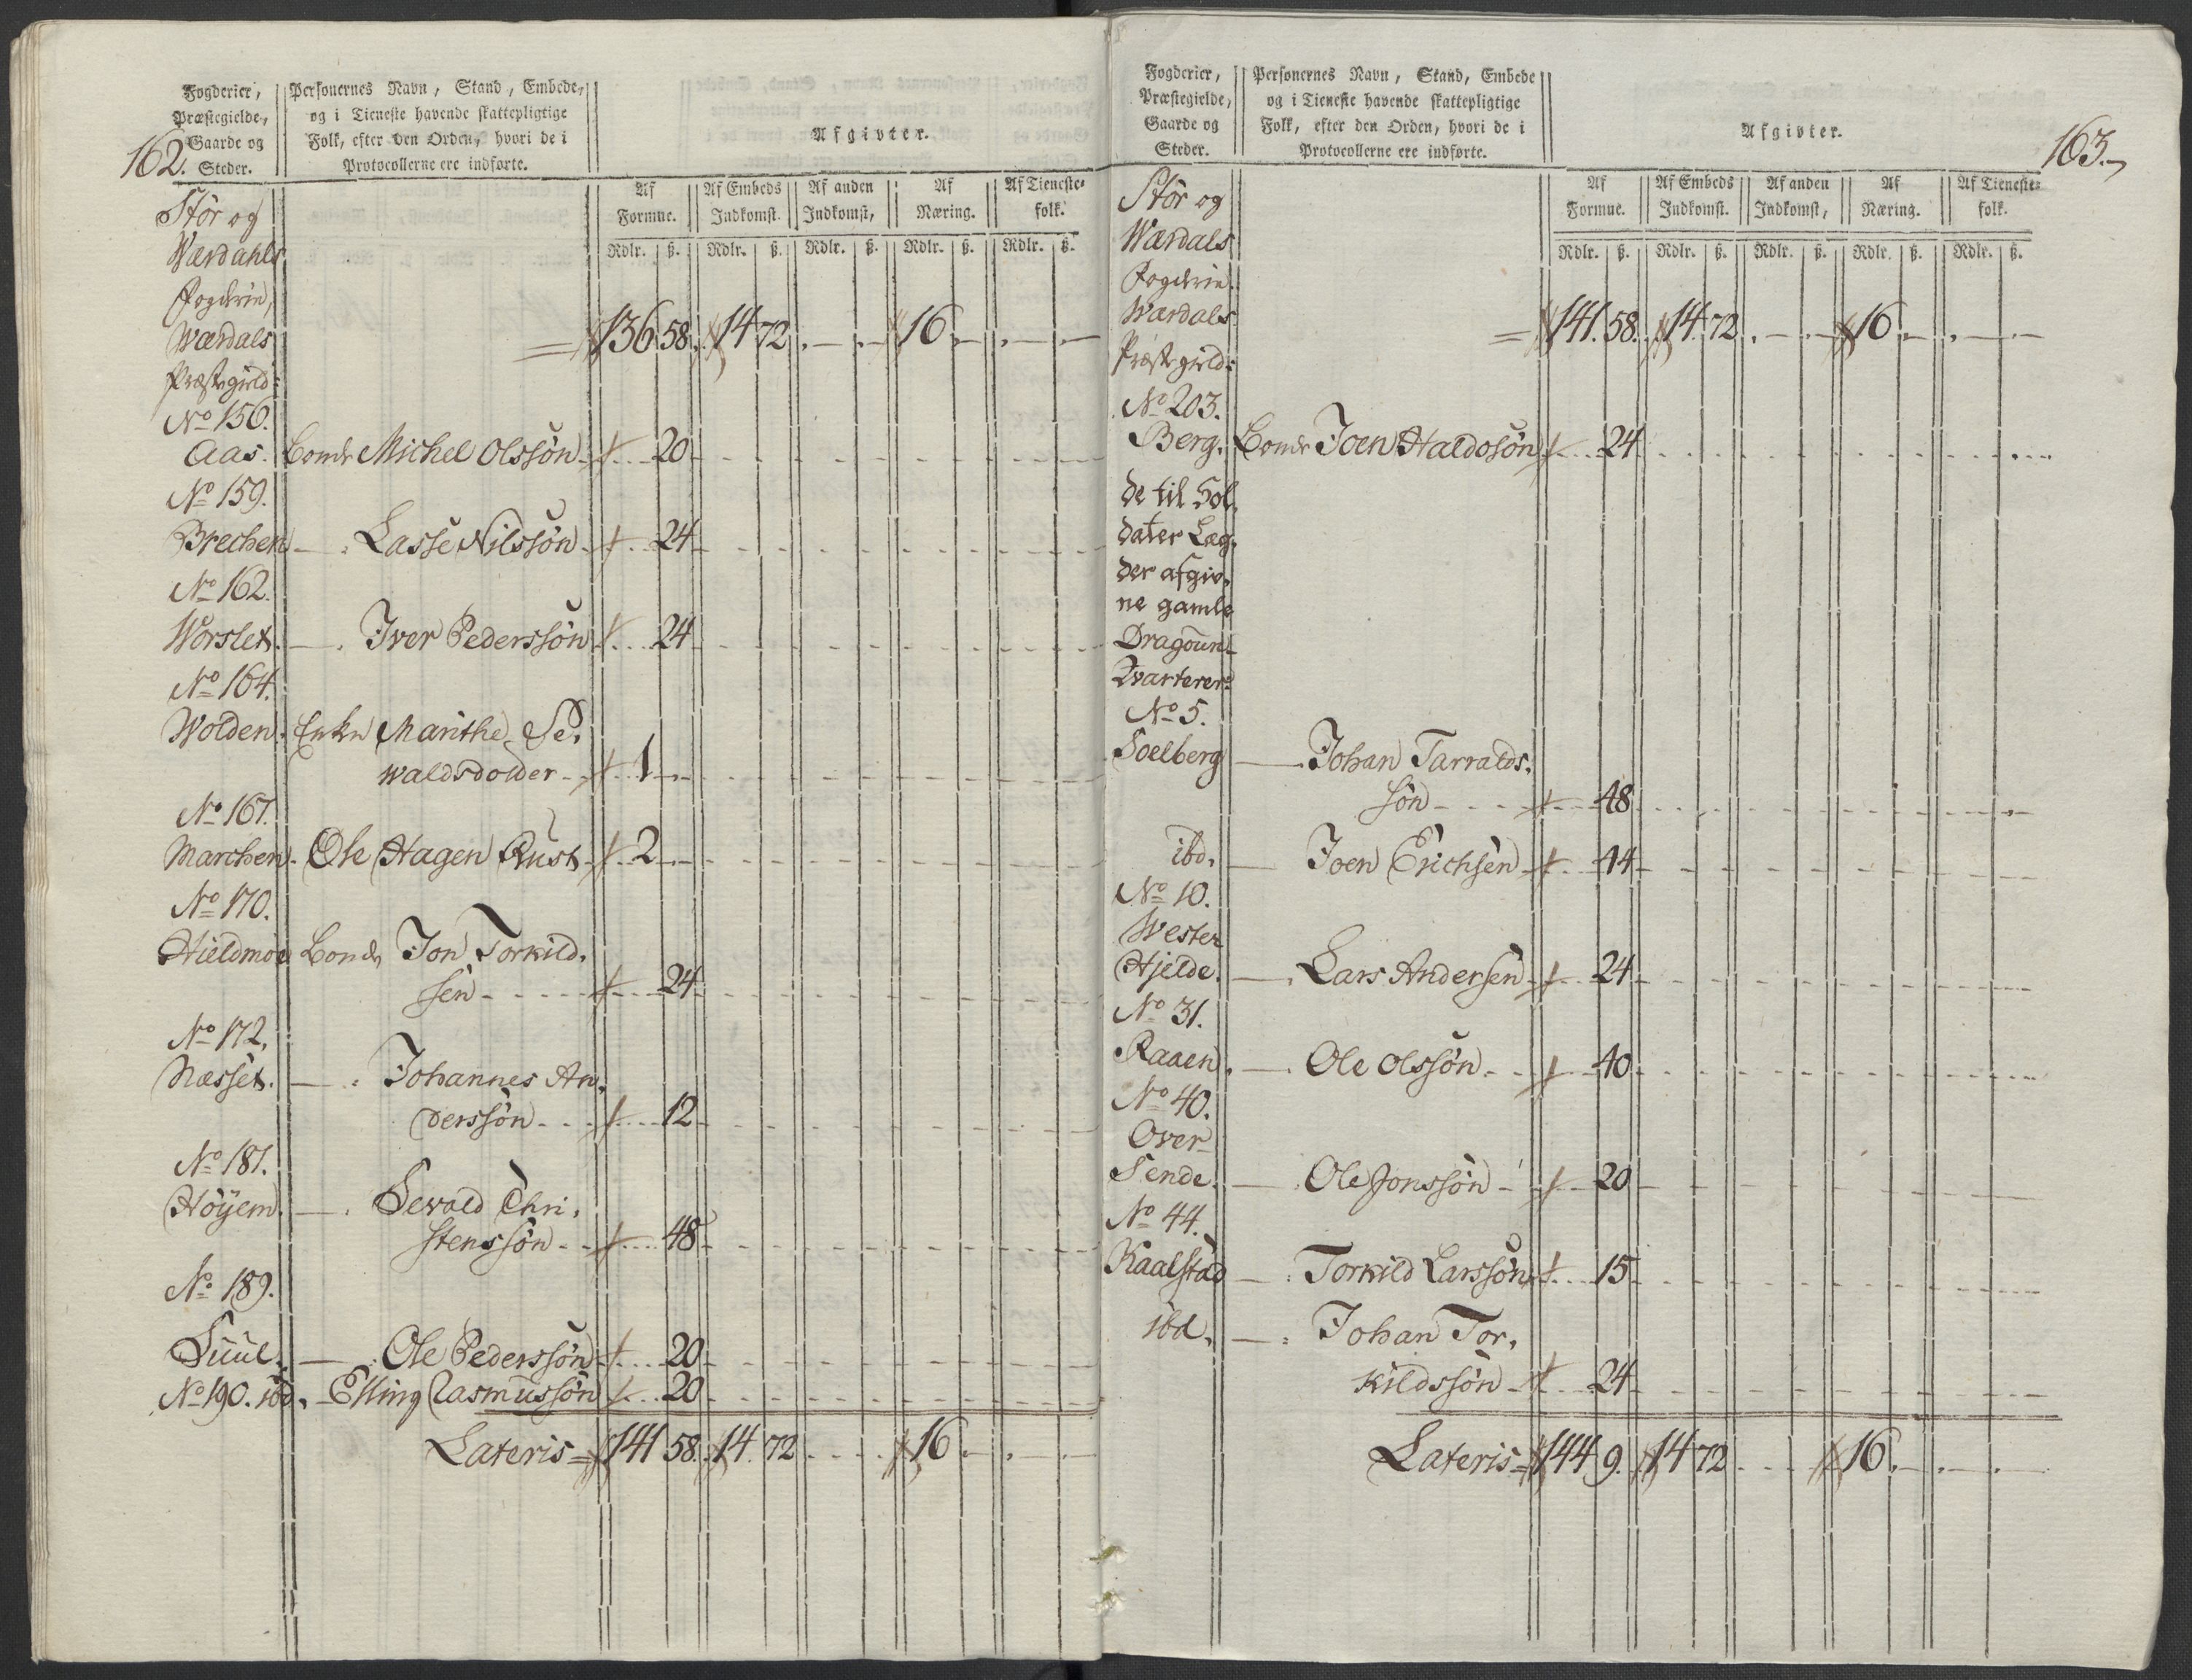 162.
Fogderier,
Præstegielde,
Gaarde og
Steder.
Personernes Navn, Stand, Embede,
og i Tieneste havende skattepligtige
Folk, efter den Orden, hvori de i
Protocollerne ere indførte.
Afgivter.
Af Formue. Af Embeds Indkomst. Af anden Indkomst, Af Næring. Af Tienestefolk.
Rdlr. ß. Rdlr. ß. Rdlr. ß. Rdlr. ß. Rdlr. ß.
Stör og
Værdahls
Fogderie,
Værdals
Præstegield:
136 58. 14 72. 16
No 156.
Aas. Bonde Michel Olssøn 20
No 159.
Brechen — Lasse Nilssøn 24
No 162.
Worslet. — Iver Pederssøn 24
No 164.
Wolden. Enke Marithe Se-
waldsdotter 1
No 167.
Marchen. Ole Hagen Rust 2
No 170.
Hieldmoe Bonde Jon Torkild-
sen 24
No 172.
Næsset. — Johannes An-
derssøn 12
No 181.
Høÿem. — Sevald Chri-
stenssøn 48
No 189.
Suul. — Ole Pederssøn 20
No 190. ibd. — Elling Rasmussøn 20
Lateris 141 58. 14. 72 16
163.
Fogderier,
Præstegielde,
Gaarde og
Steder.
Personernes Navn, Stand, Embede
og i Tieneste havende skattepligtige
Folk, efter den Orden, hvori de i
Protocollerne ere indførte.
Afgivter.
Af Formue. Af Embeds Indkomst. Af anden Indkomst, Af Næring. Af Tienestefolk.
Rdlr. ß. Rdlr. ß. Rdlr. ß. Rdlr. ß. Rdlr. ß.
Stör og
Værdals
Fogderie.
Værdals
Præstegield:
141. 58. 14. 72. 16
No 203.
Berg. Bonde Joen Haldosøn 24
de til Sol-
dater Læg-
der afgiv-
ne gamle
Dragoun-
Qvarterer:
No 5.
Soelberg — Johan Tarralds-
søn 48
ibd. — Joen Erichsen 44
No 10.
Wester
Hjelde. — Lars Andersen 24
No 31.
Raaen. — Ole Olssøn 40
No 40.
Over-
Sende. — Ole Jonssøn 20
No 44.
Kaalstad — Torkild Larssøn 15
ibd. — Johan Tor-
kildssøn 24
Lateris 144 9. 14 72 16